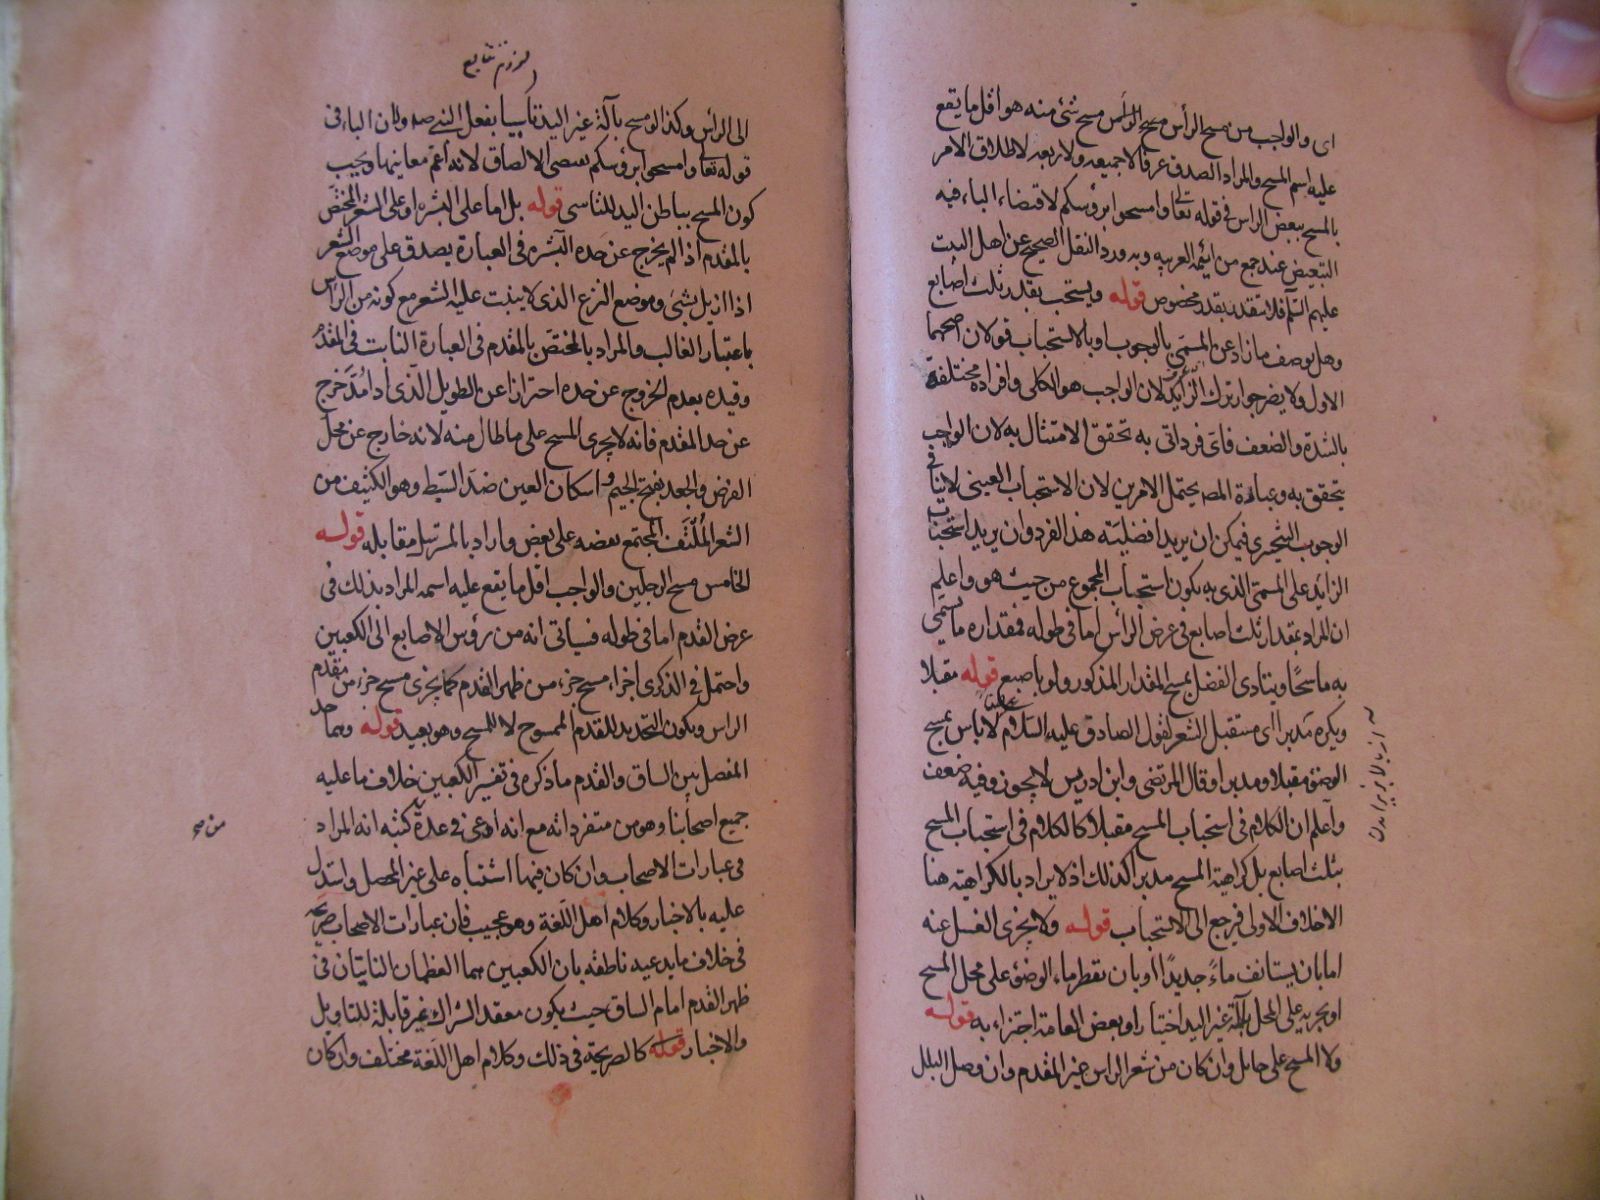 اى والواجب من مسح الرأس مسح الرأس مسح شئ منه هو اقل ما يقع
عليه اسم المسح والمراد الصدق عرفا لا جميعه ولا ربعه لاطلاق الامر
بالمسح ببعض الراس فى قوله تعالى وامسحوا برؤسكم لاقتضاء الباء فيه
التبعيض عند جمع من ائمه العربيه وبه ورد النقل الصحيح عن اهل البيت
عليهم السلم فلا يتقدر بقدر مخصوص قوله ويستحب بقدر ثلث اصابع
وهل يوصف ما زاد عن المسمى بالوجوب او بالاستحباب قولان اصحهما
الاول ولا يضر جواز ترك الزايد لان الواجب هو الكلى وافراده مختلفة
بالشدة والضعف فاى فرد اتى به تحقق الامتثال به لان الواجب
يتحقق به وعبارة المصه يحتمل الامرين لان الاستحباب العينى لا ينافى
الوجوب التخيرى فيمكن ان يريد افضلية هذا الفرد وان يريد استحباب
الزايد على المسمى الذى به يكون استحباب المجموع من حيث هو واعلم
ان المراد بمقدار ثلث اصابع فى عرض الراس اما فى طوله فمقداره ما يسمى
به ماسحا ويتادى الفضل بمسح المقدار المذكور ولو باصبع قوله مقبلا
ويكره مدبرا اى مستقبل الشعر لقول الصادق عليه السلام لا باس بمسح
الوضوء مقبلا ومدبرا وقال المرتضى وابن ادريس لا يجوز وفيه ضعف
واعلم ان الكلام فى استحباب المسح مقبلا كالكلام فى استحباب المسح
بثلث اصابع بل كراهية المسح مدبرا كذلك اذ لا يراد بالكراهة هنا
الا خلاف الاولى فيرجع الى الاستحباب قوله ولا يجزى الغسل عنه
اما بان يستانف ماءً جديدًا او بان يقطر ماء الوضوء على محل المسح
او يجريه على المحل بآلة غير اليد اختيارا وبعض العامة اجتزاء به قوله
ولا المسح على حايل وان كان من شعر الراس غير المقدم وان وصل البلل
الى الراس وكذا لو مسح بآلة غير اليد تأسيا بفعل النبى صه ولان الباء فى
قوله تعالى وامسحوا برؤسكم بمعنى الالصاق لانه اعم معانيها ويجب
كون المسح بباطن اليد للتاسى قوله بل اما على البشره او على الشعر المختص
بالمقدم اذا لم يخرج عن حده البشره فى العبارة يصدق على موضع الشعر
اذا ازيل بشئ وموضع النزع الذى لا ينبت عليه الشعر مع كونه من الرأس
باعتبار الغالب والمراد بالمختص بالمقدم فى العبارة النابت فى المقدم
وقيده بعدم الخروج عن حده احترازا عن الطويل الذى اذا مُدّ خرج
عن حد المقدم فانه لا يجزى المسح على ما طال منه لانه خارج عن محل
الفرض والجعد بفتح الجيم واسكان العين ضد السبط وهو الكثيف من
الشعر الملتف المجتمع بعضه على بعض واراد بالمسترسل مقابله قوله
الخامس مسح الرجلين والواجب اقل ما يقع عليه اسمه المراد بذلك فى
عرض القدم اما فى طوله فسياتى انه من رؤس الاصابع الى الكعبين
واحتمل فى الذكرى اجزاء مسح جزء من ظهر القدم كما يجزى مسح جزء من مقدم
الراس ويكون التحديد للقدم الممسوح لا للمسح وهو بعيد قوله وهما حد
المفصل بين الساق والقدم ما ذكره فى تفسير الكعبين خلاف ما عليه
جميع اصحابنا وهو من متفرداته مع انه ادعى فى عدة كتبه انه المراد
فى عبارات الاصحاب وان كان فيها اشتباه على غير المحصل واستدل
عليه بالاخبار وكلام اهل اللغة وهو عجيب فان عبارات الاصحاب صريحة
فى خلاف ما يدعيه ناطقه بان الكعبين هما العظمان الناتيان فى
ظهر القدم امام الساق حيث يكون معقد الشراك غير قابلة للتاويل
والاخبار قوله كالصريحة فى ذلك وكلام اهل اللغة مختلف وان كان